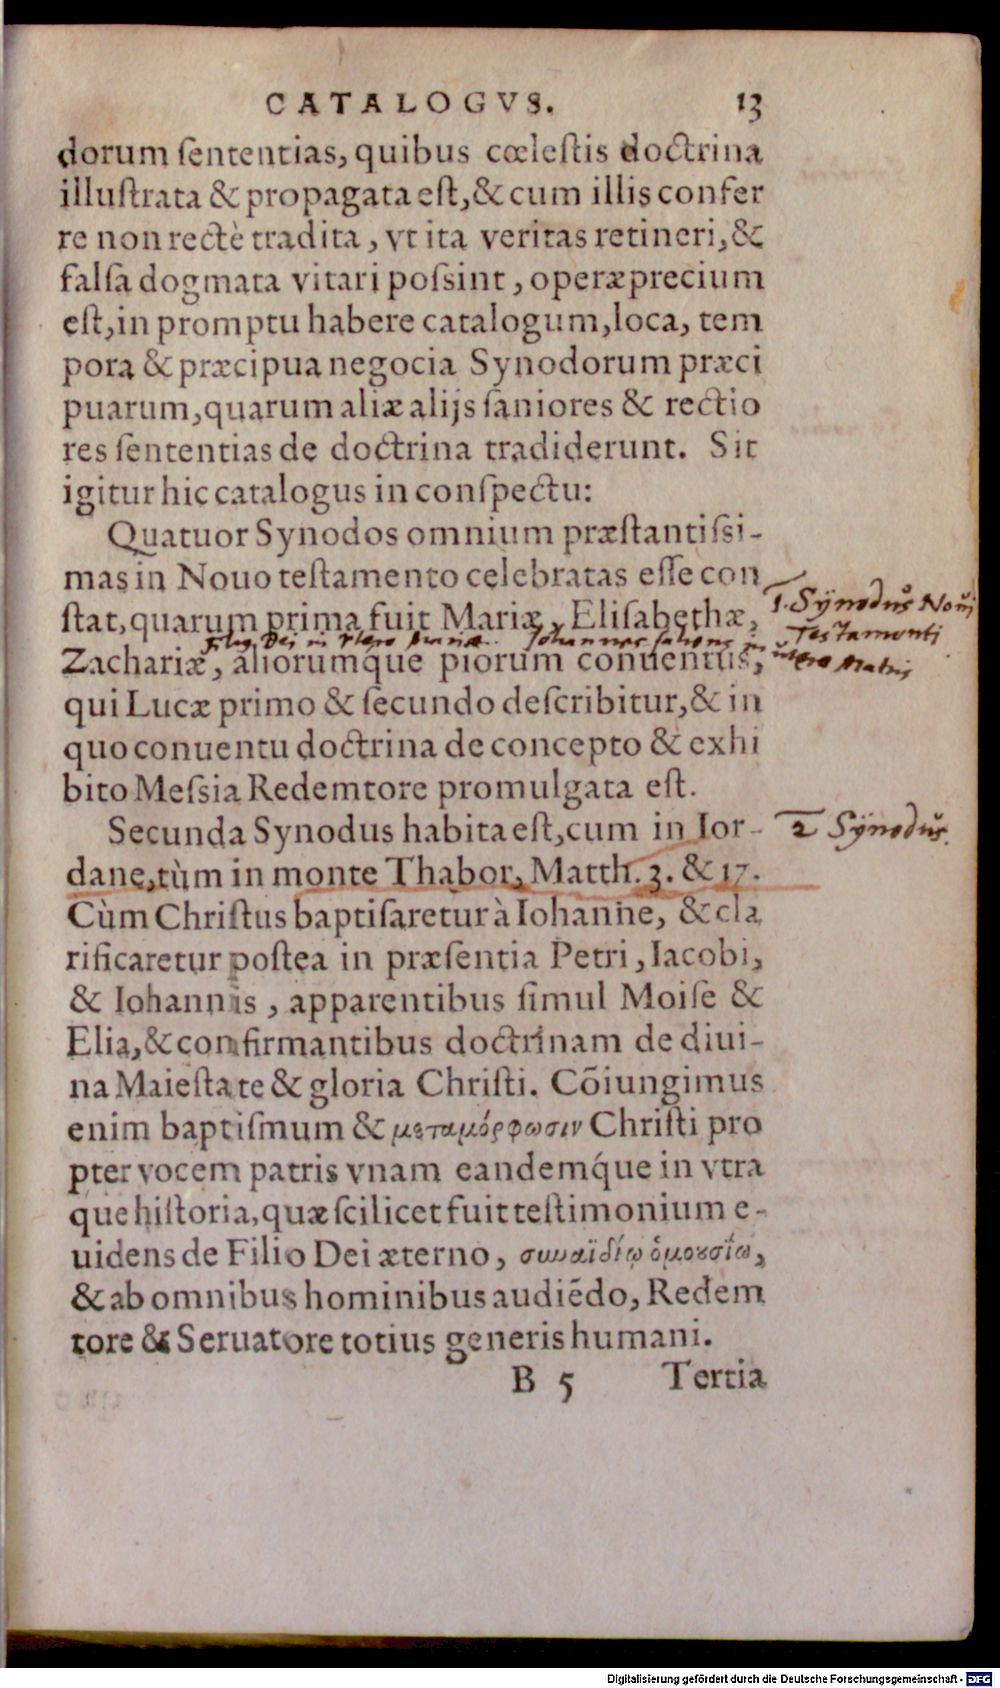 CATALOGVS. 13
dorum ſententias, quibus cœleſtis doctrina
illuſtrata & propagata eſt, & cum illis confer
re non rectè tradita, vt ita veritas retineri, &
falſa dogmata vitari poſsint, operæprecium
eſt, in promptu habere catalogum, loca, tem
pora & præcipua negocia Synodorum præci
puarum, quarum aliæ alijs ſaniores & rectio
res ſententias de doctrina tradiderunt. Sit
igitur hic catalogus in conſpectu:
Quatuor Synodos omnium præſtantiſsi-
mas in Nouo teſtamento celebratas eſſe con
ſtat, quarum prima fuit Mariæ, Eliſabethæ,
1. Synodus Novi
Testamenti
Filius Dei in Vtero Mariæ. Iohannes saliens in
vtero Matris
Zachariæ, aliorumq́ue piorum conuentus,
qui Lucæ primo & ſecundo deſcribitur, & in
quo conuentu doctrina de concepto & exhi
bito Meſsia Redemtore promulgata eſt.
Secunda Synodus habita eſt, cum in Ior-
2 Synodus.
dane, tùm in monte Thabor, Matth. 3. & 17.
Cùm Chriſtus baptiſaretur à Iohanne, & cla
rificaretur poſtea in præſentia Petri, Iacobi,
& Iohannis, apparentibus ſimul Moiſe &
Elia, & confirmantibus doctrinam de diui-
na Maieſtate & gloria Chriſti. Cõiungimus
enim baptiſmum & μεταμόρφωσιν Chriſti pro
pter vocem patris vnam eandemq́ue in vtra
que hiſtoria, quæ ſcilicet fuit teſtimonium e-
uidens de Filio Dei æterno, συναϊδίῳ ὁμουσίῳ,
& ab omnibus hominibus audiẽdo, Redem
tore & Seruatore totius generis humani.
B 5 Tertia
Digitalisierung gefördert durch die Deutsche Forschungsgemeinschaft - DFG